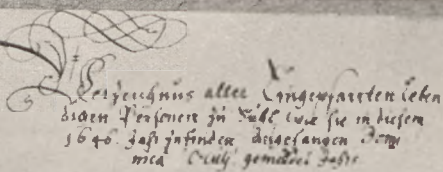 Verzeichnus aller Eingepfarrten leben
digen Persohnen zu Suhl wie sie in diesem
1646. Jahr zufinden angefangen Domi
nica Oculi gemeldes Jahrs